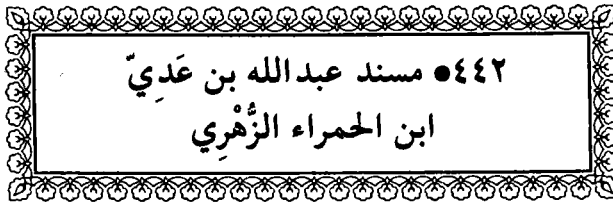 ٤٤٢● مسند عبدالله بن عَدِيّ
ابن الحمراء الزُّهْرِي